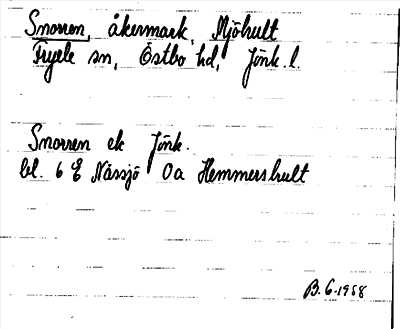 Snorren, åkermark, Mjöhult
Fryele sn, Östbo hd, Jönk. l.
Snorren ek Jönk.
bl. 6 E Nässjö Oa Hemmershult
B. G. 1958